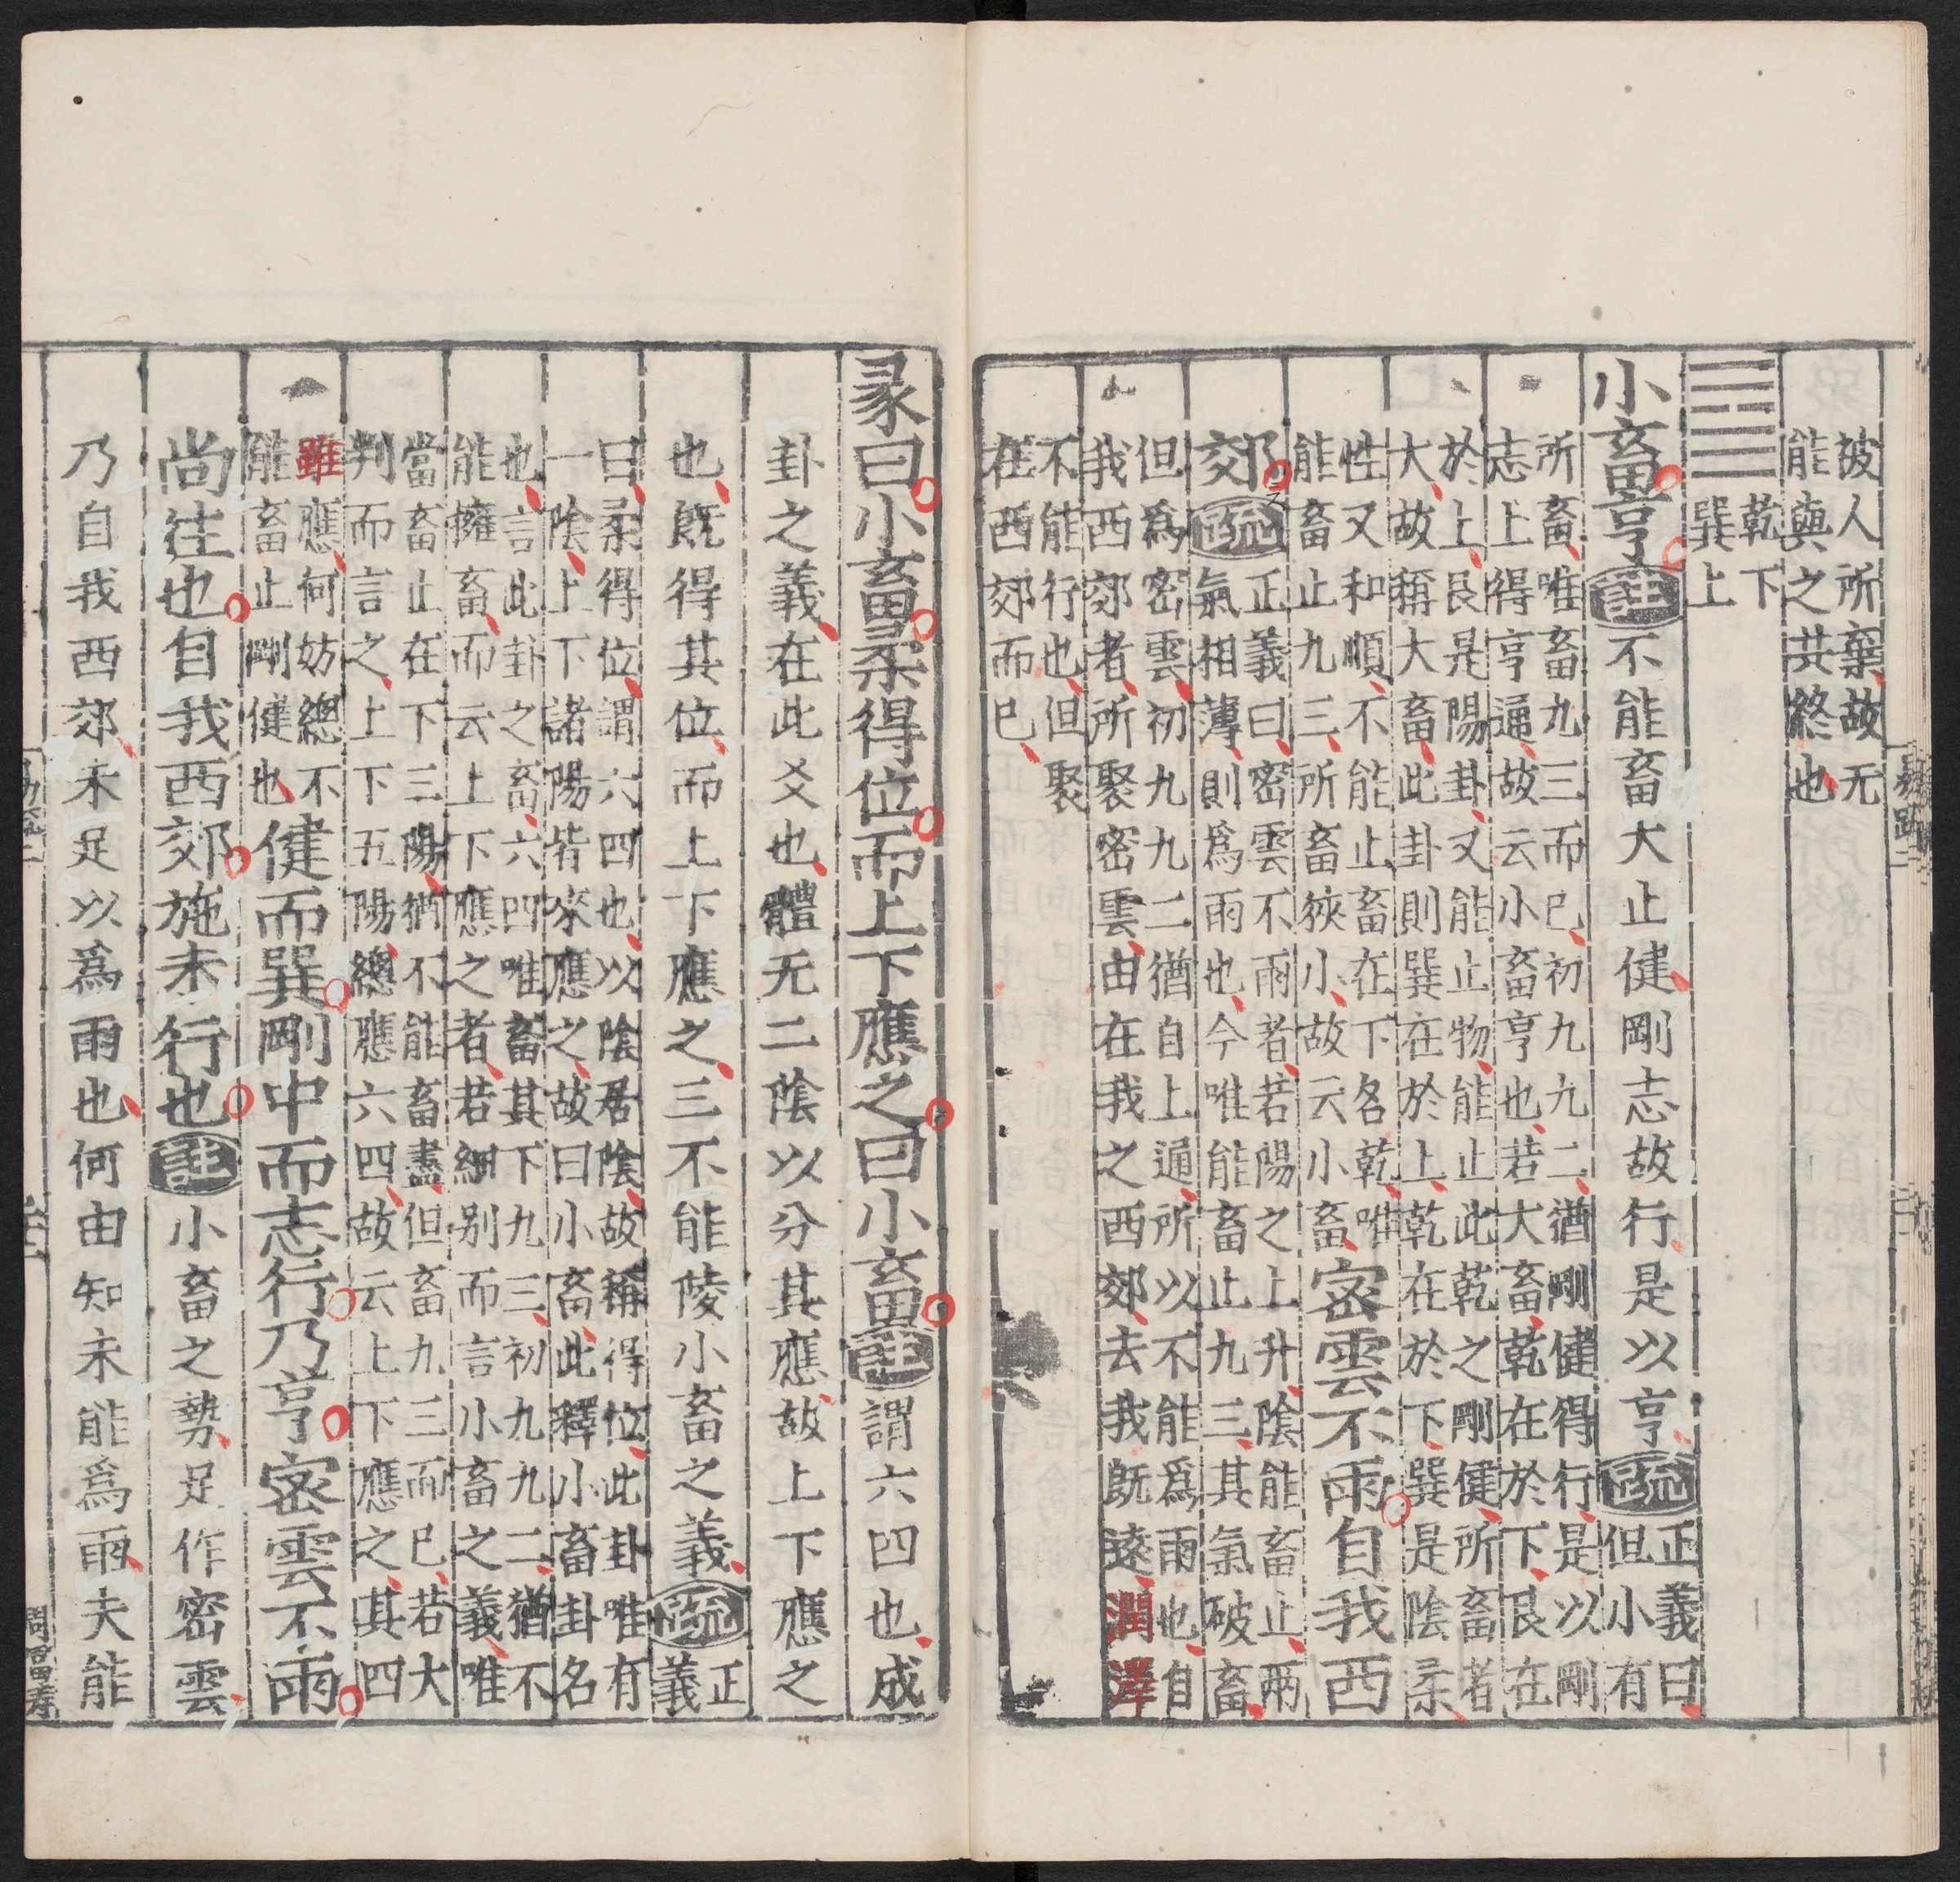 被人所棄故无
能與之共終也
䷈乾下
巽上
小畜亨註不能畜大止健剛志故行是以亨疏正義曰
但小有
所畜唯畜九三而已初九九二猶剛健得行是以剛
志上得亨通故云小畜亨也若大畜乾在於下艮在
於上艮是陽卦又能止物能止此乾之剛健所畜者
大故稱大畜此卦則巽在於上乾在於下巽是陰柔
性又和順不能止畜在下各乾唯
能畜止九三所畜狹小故云小畜
密雲不雨自我西
郊疏正義曰密雲不雨者若陽之上升陰能畜止兩
氣相薄則爲雨也今唯能畜止九三其氣破畜
但爲密雲初九九二猶自上通所以不能爲雨也自
我西郊者所聚密雲由在我之西郊去我既遠潤澤
不能行也但聚
在西郊而已
彖曰小畜柔得位而上下應之曰小畜註謂六四也成
卦之義在此爻也體无二陰以分其應故上下應之
也既得其位而上下應之三不能陵小畜之義疏正
義
曰柔得位謂六四也以陰居陰故稱得位此卦唯有
一陰上下諸陽皆來應之故曰小畜此釋小畜卦名
也言此卦之畜六四唯畜其下九三初九九二猶不
能擁畜而云上下應之者若細別而言小畜之義唯
當畜止在下三陽猶不能畜盡但畜九三而已若大
判而言之上下五陽總應六四故云上下應之其四
雖應何妨總不
能畜止剛健也
健而巽剛中而志行乃亨密雲不雨
尚往也自我西郊施未行也註小畜之勢足作密雲
乃自我西郊未足以爲雨也何由知未能爲雨夫能